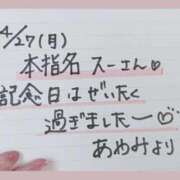 4/27(月)
本指名 スーさん♡
記念日はぜいたく
過ぎましたー♡
あゆみより